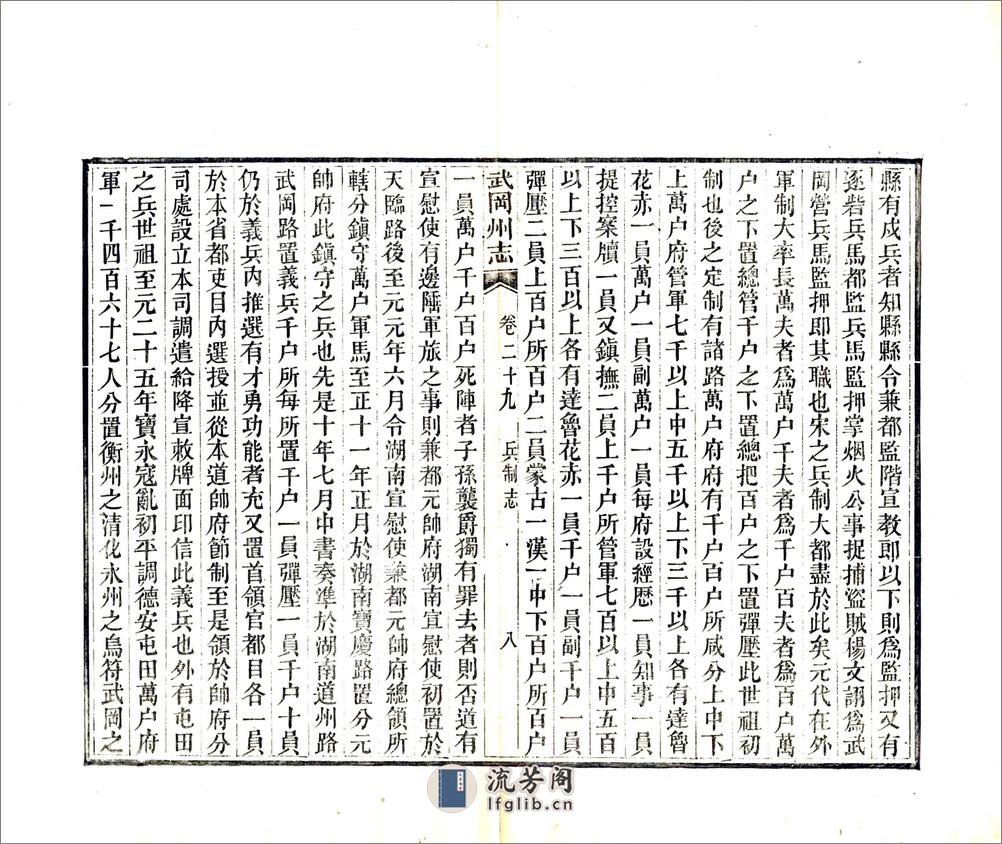 縣有戍兵者知縣縣令兼都監階宣教卽以下則爲監押又有
逐砦兵馬都監兵馬監押掌烟火公事捉捕盜賊楊文詡爲武
岡營兵馬監押即其職也宋之兵制大都盡於此矣元代在外
軍制大率長萬夫者爲萬户千夫者爲千户百夫者爲百户萬
户之下置總管千户之下置總把百户之下置彈壓此世祖初
制也後之定制有諸路萬户府府有千户百户所咸分上中下
上萬户府管軍七千以上中五千以上下三千以上各有達魯
花赤一員萬户一員副萬户一員每府設經歷一員知事一員
提控案牘一員又鎮撫二員上千户所管軍七百以上中五百
以上下三百以上各有達魯花赤一員千户一員副千户一員
彈壓二員上百户所百户二員蒙古一漢一中下百户所百户
武岡州志
卷二十九
兵制志
八
一員萬户千户百户死陣者子孫襲爵獨有罪去者則否道有
宣慰使有邊陲軍旅之事則兼都元帥府湖南宣慰使初置於
天臨路後至元元年六月令湖南宣慰使兼都元帥府總領所
轄分鎮守萬户軍馬至正十一年正月於湖南寶慶路置分元
帥府此鎮守之兵也先是十年七月中書奏準於湖南道州路
武岡路置義兵千户所每所置千户一員彈壓一員千户十員
仍於義兵內推選有才勇功能者充又置首領官都目各一員
於本省都吏目內選授並從本道帥府節制至是領於帥府分
司處設立本司調遣給降宣敕牌面印信此義兵也外有屯田
之兵世祖至元二十五年寶永寇亂初平調德安屯田萬户府
軍一千四百六十七人分置衡州之清化永州之烏符武岡之
流芳阁
lfglib.cn